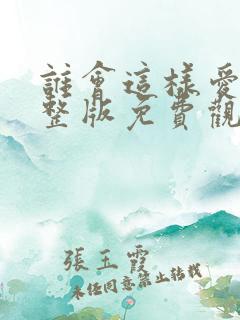 誰會這樣愛
整版免費觀
張玉霞
未經同意禁止轉載